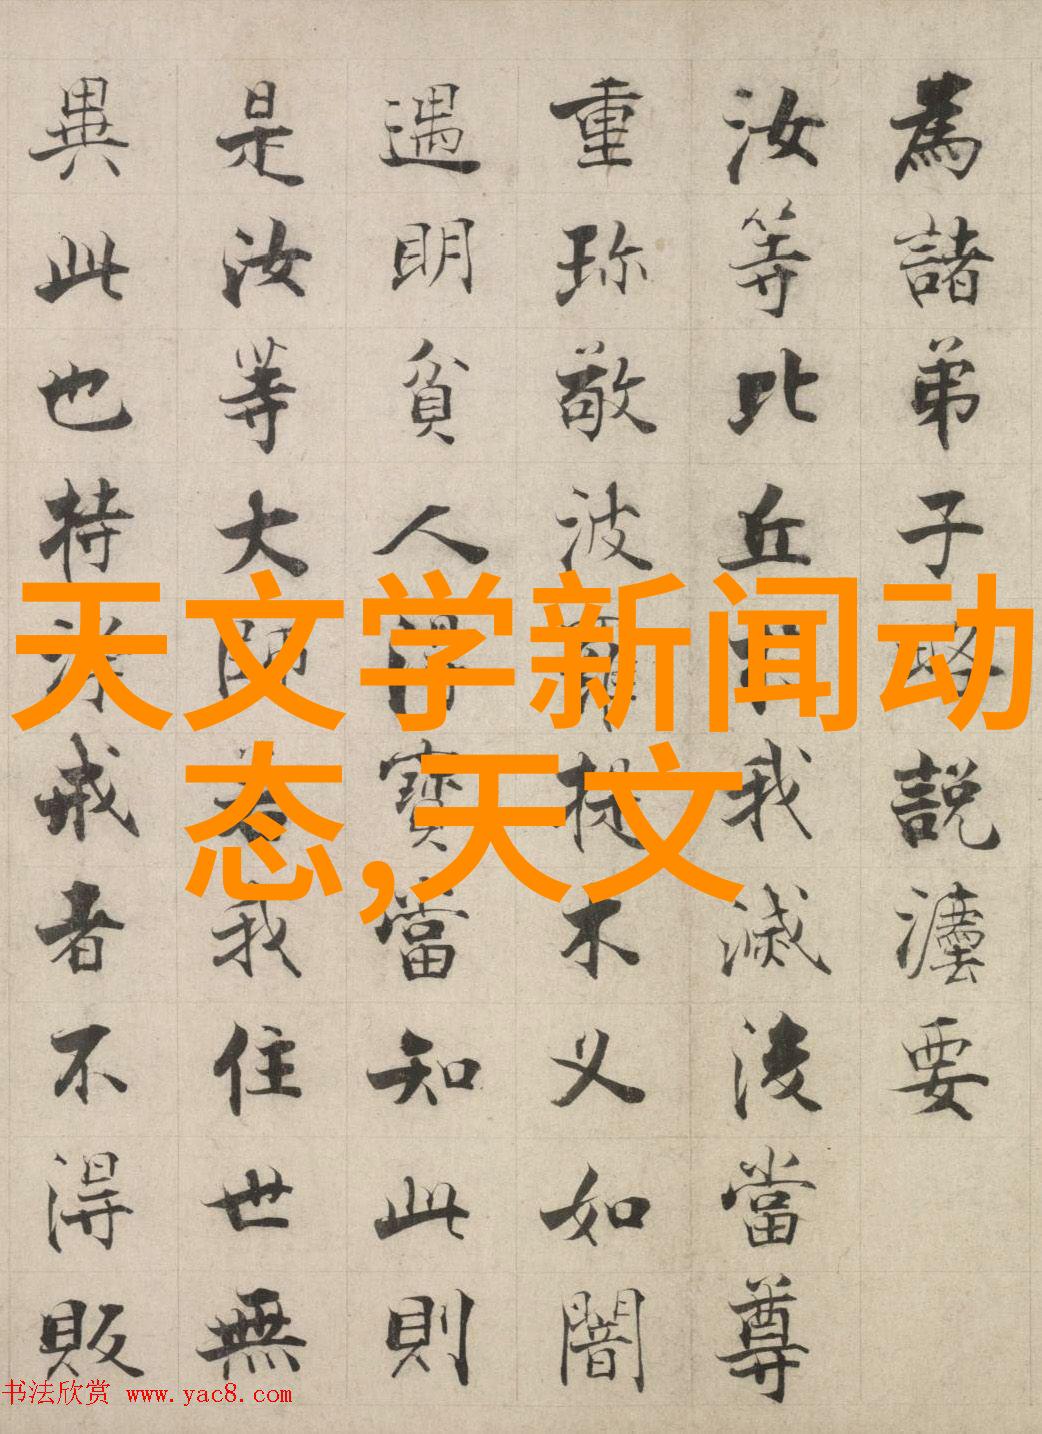 為諸弟子略説灋要
汝等比丘我滅後當尊
重珎敬波羅提木叉如闇
遇明貧人得寶當知此則
是汝等大師我住世無
異此也持戒者不得販
天文学新闻动
态,天文
书法欣赏 www.yac8.com